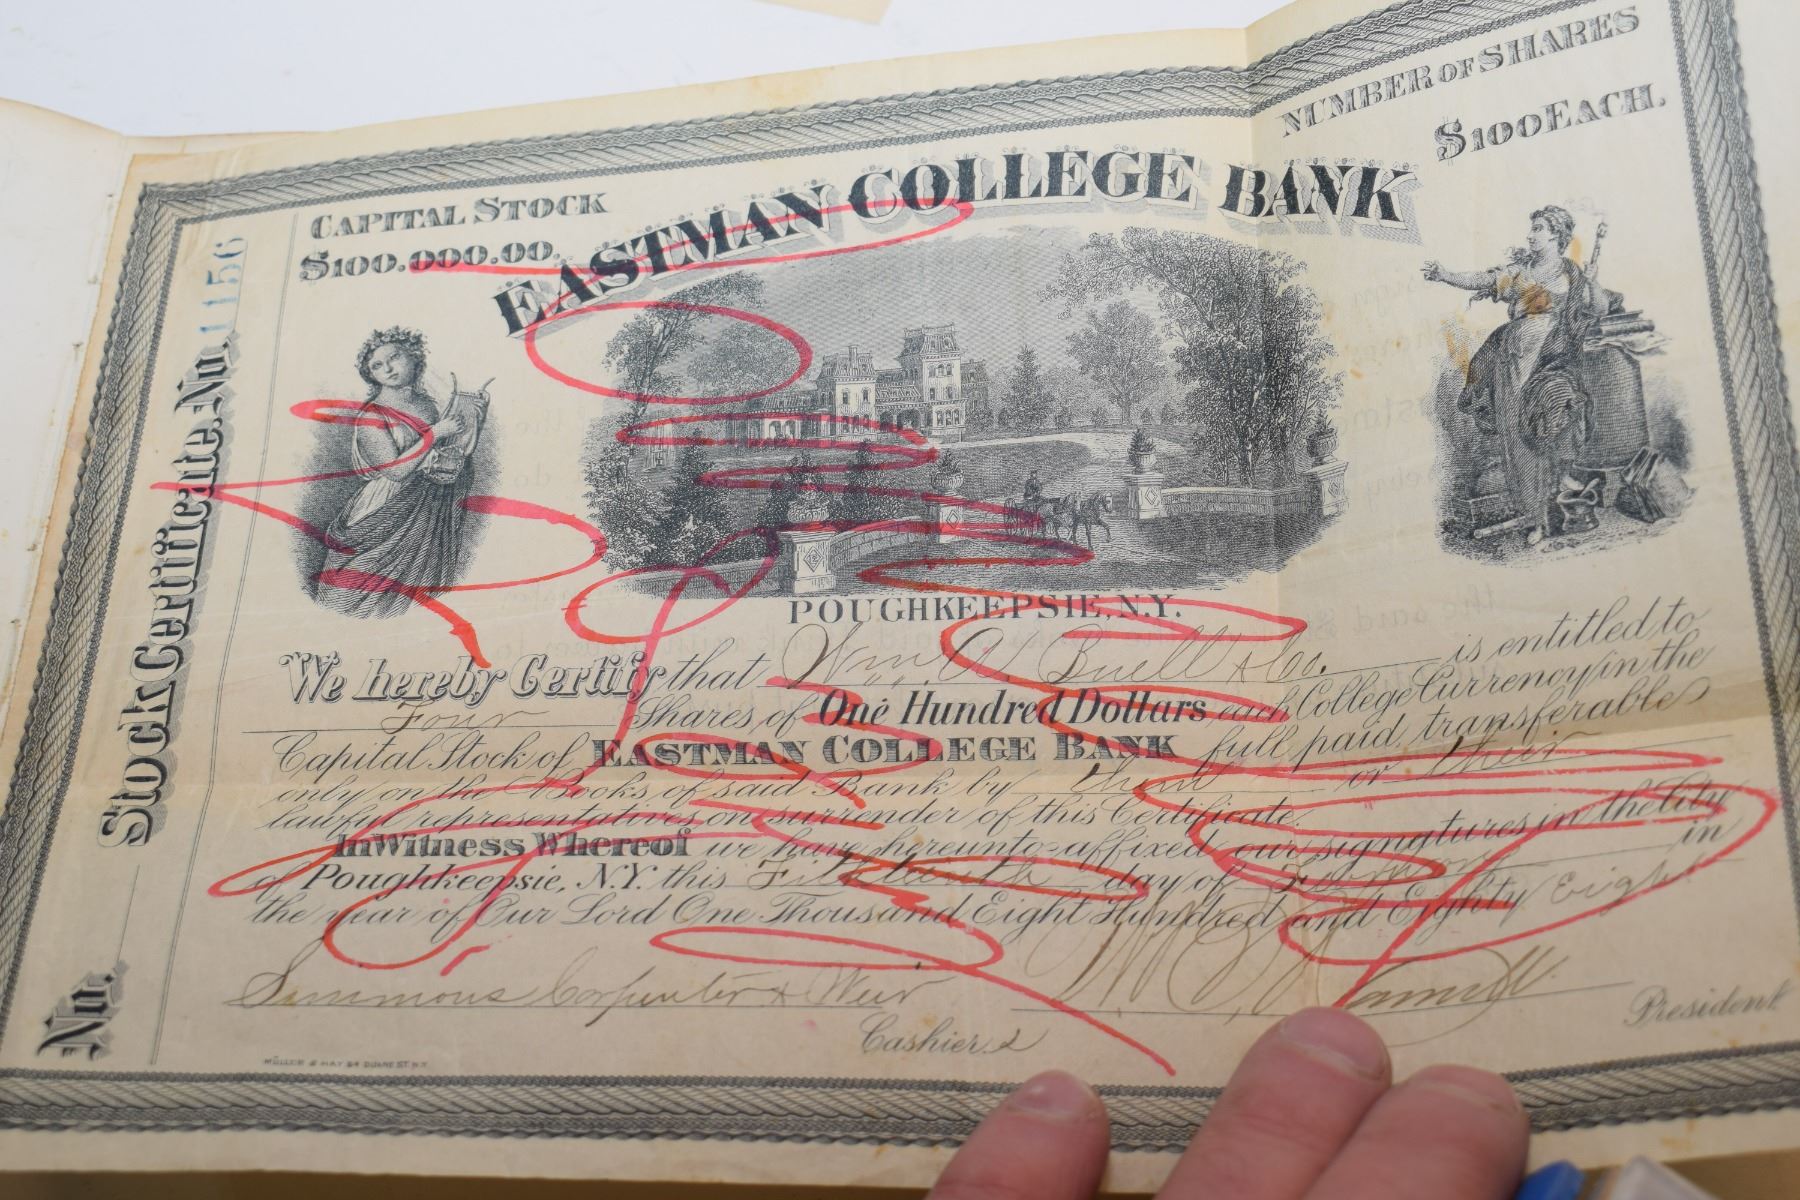 CAPITAL STOCK
$100.000.00.
NUMBER OF SHARES
$100 EACH.
EASTMAN COLLEGE BANK
Stock Certificate. No. 1156
No.
POUGHKEEPSIE, N.Y.
We hereby Certify that Wm. A. Buell & Co. is entitled to
Four Shares of One Hundred Dollars each College Currency in the
Capital Stock of EASTMAN COLLEGE BANK full paid, transferable
only on the Books of said Bank by them or their
lawful representatives on surrender of this Certificate.
In Witness Whereof we have hereunto affixed our signatures in the City
of Poughkeepsie, N.Y. this Fifteenth day of in
the year of Our Lord One Thousand Eight Hundred and Eighty Eight
Simmons Carpenter & Weir
Cashier.
President.
MÜLLER & MAY 64 DUANE ST. N.Y.